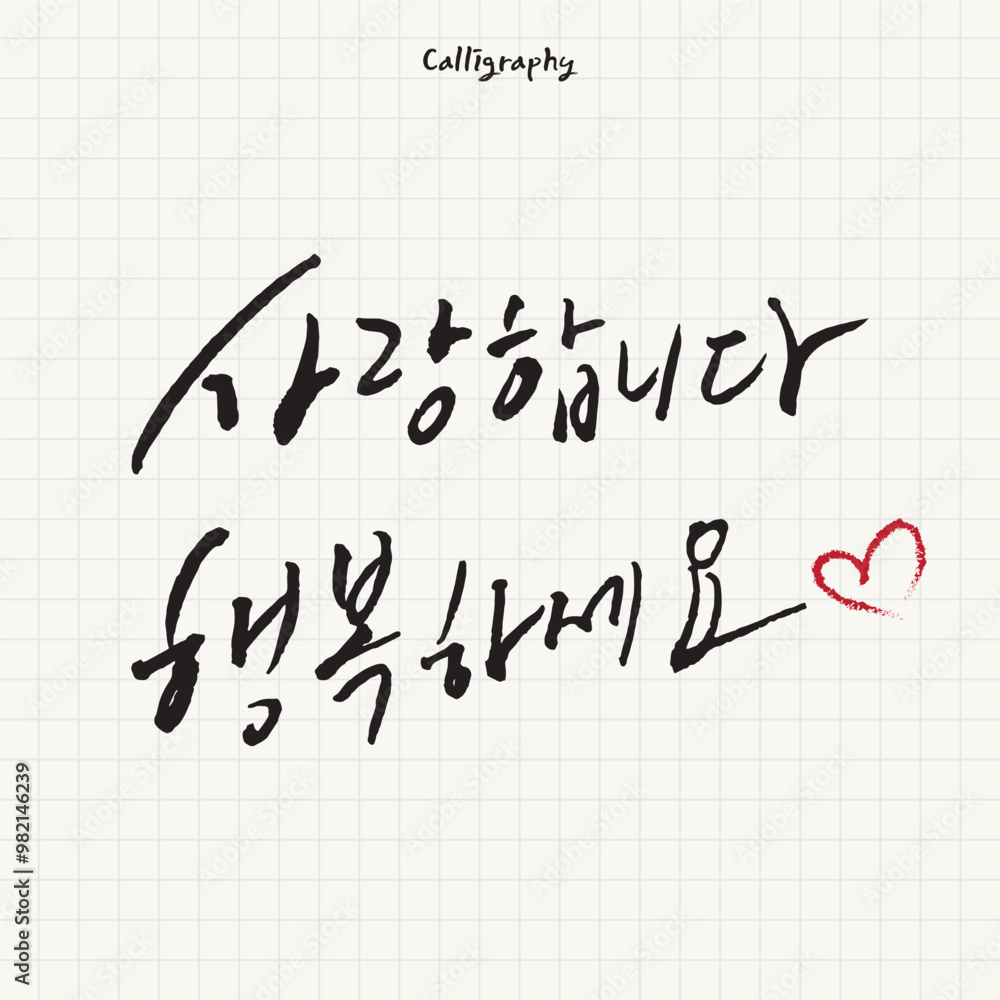 Calligraphy
사랑합니다
행복하세요
Adobe Stock | #982146239